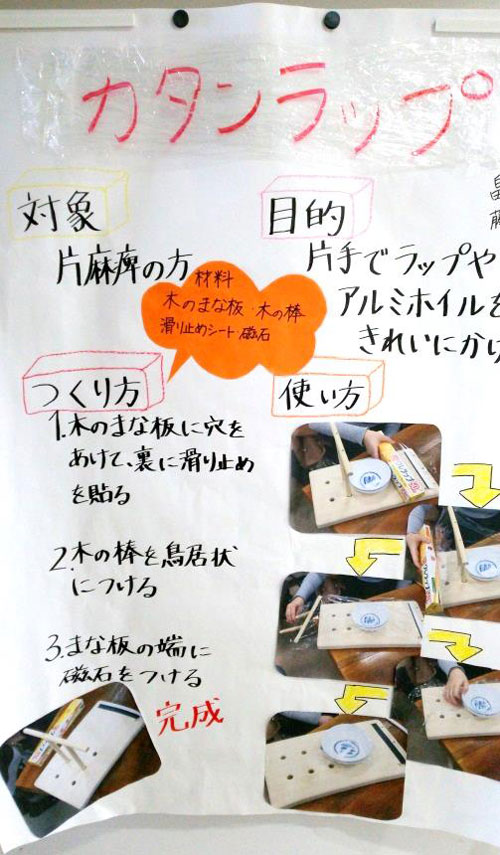 カタンラップ
対象
片麻痺の方
目的
片手でラップや
アルミホイルを
きれいにかけ
材料
木のまな板・木の棒
滑り止めシート 磁石
つくり方
1.木のまな板に穴を
あけて、裏に滑り止め
を貼る
2.木の棒を鳥居状
につける
3.まな板の端に
磁石をつける
完成
使い方